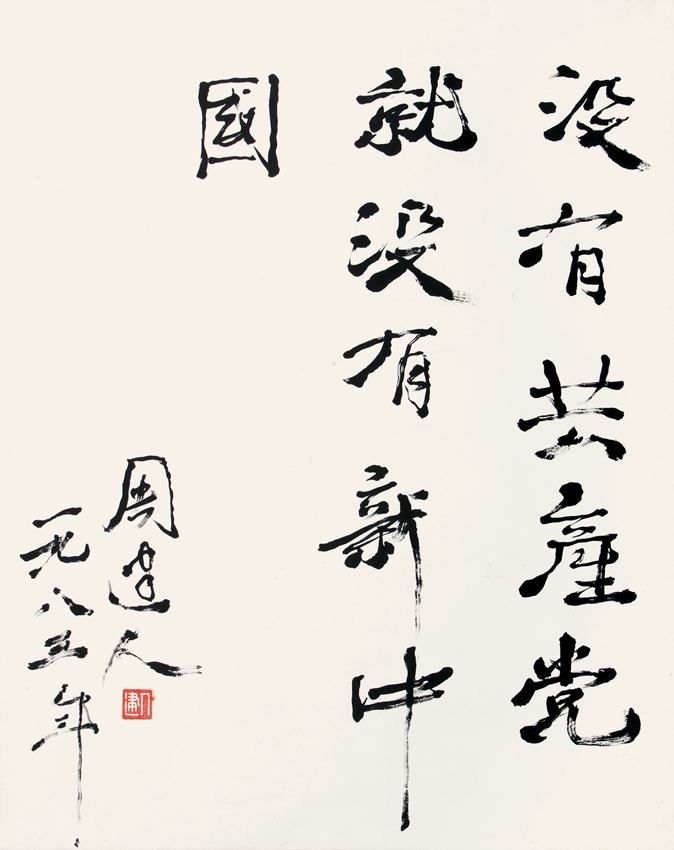 没有共産党
就没有新中
國
周建人
一九八三年
建人